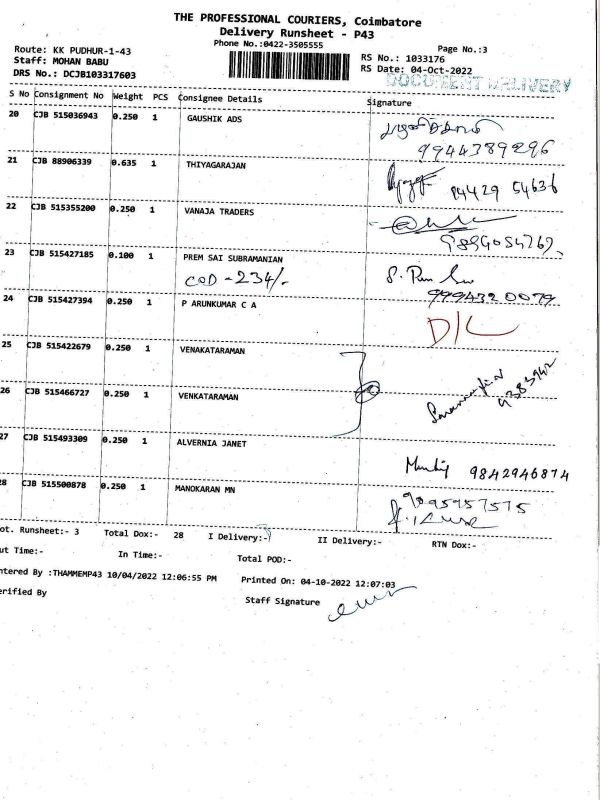 THE PROFESSIONAL COURIERS, Coimbatore
Delivery Runsheet - P43
Phone No.:0422-3505555
Page No.:3
Route: KK PUDHUR-1-43
RS No.: 1033176
Staff: MOHAN BABU
RS Date: 04-Oct-2022
DRS No.: DCJB103317603
DOCUMENT DELIVERY
S No Consignment No Weight PCS Consignee Details Signature
20 CJB 515036943 0.250 1 GAUSHIK ADS
9944389296
21 CJB 88906339 0.635 1 THIYAGARAJAN
94429 54636
22 CJB 515355200 0.250 1 VANAJA TRADERS
9894054767
23 CJB 515427185 0.100 1 PREM SAI SUBRAMANIAN
COD - 234/-
9994320079
24 CJB 515427394 0.250 1 P ARUNKUMAR C A
D/L
25 CJB 515422679 0.250 1 VENAKATARAMAN
9383942
26 CJB 515466727 0.250 1 VENKATARAMAN
27 CJB 515493309 0.250 1 ALVERNIA JANET
9842946874
28 CJB 515500878 0.250 1 MANOKARAN MN
9095957575
ot. Runsheet:- 3 Total Dox:- 28 I Delivery:- II Delivery:- RTN Dox:-
ut Time:- In Time:- Total POD:-
ntered By :THAMMEMP43 10/04/2022 12:06:55 PM Printed On: 04-10-2022 12:07:03
erified By Staff Signature